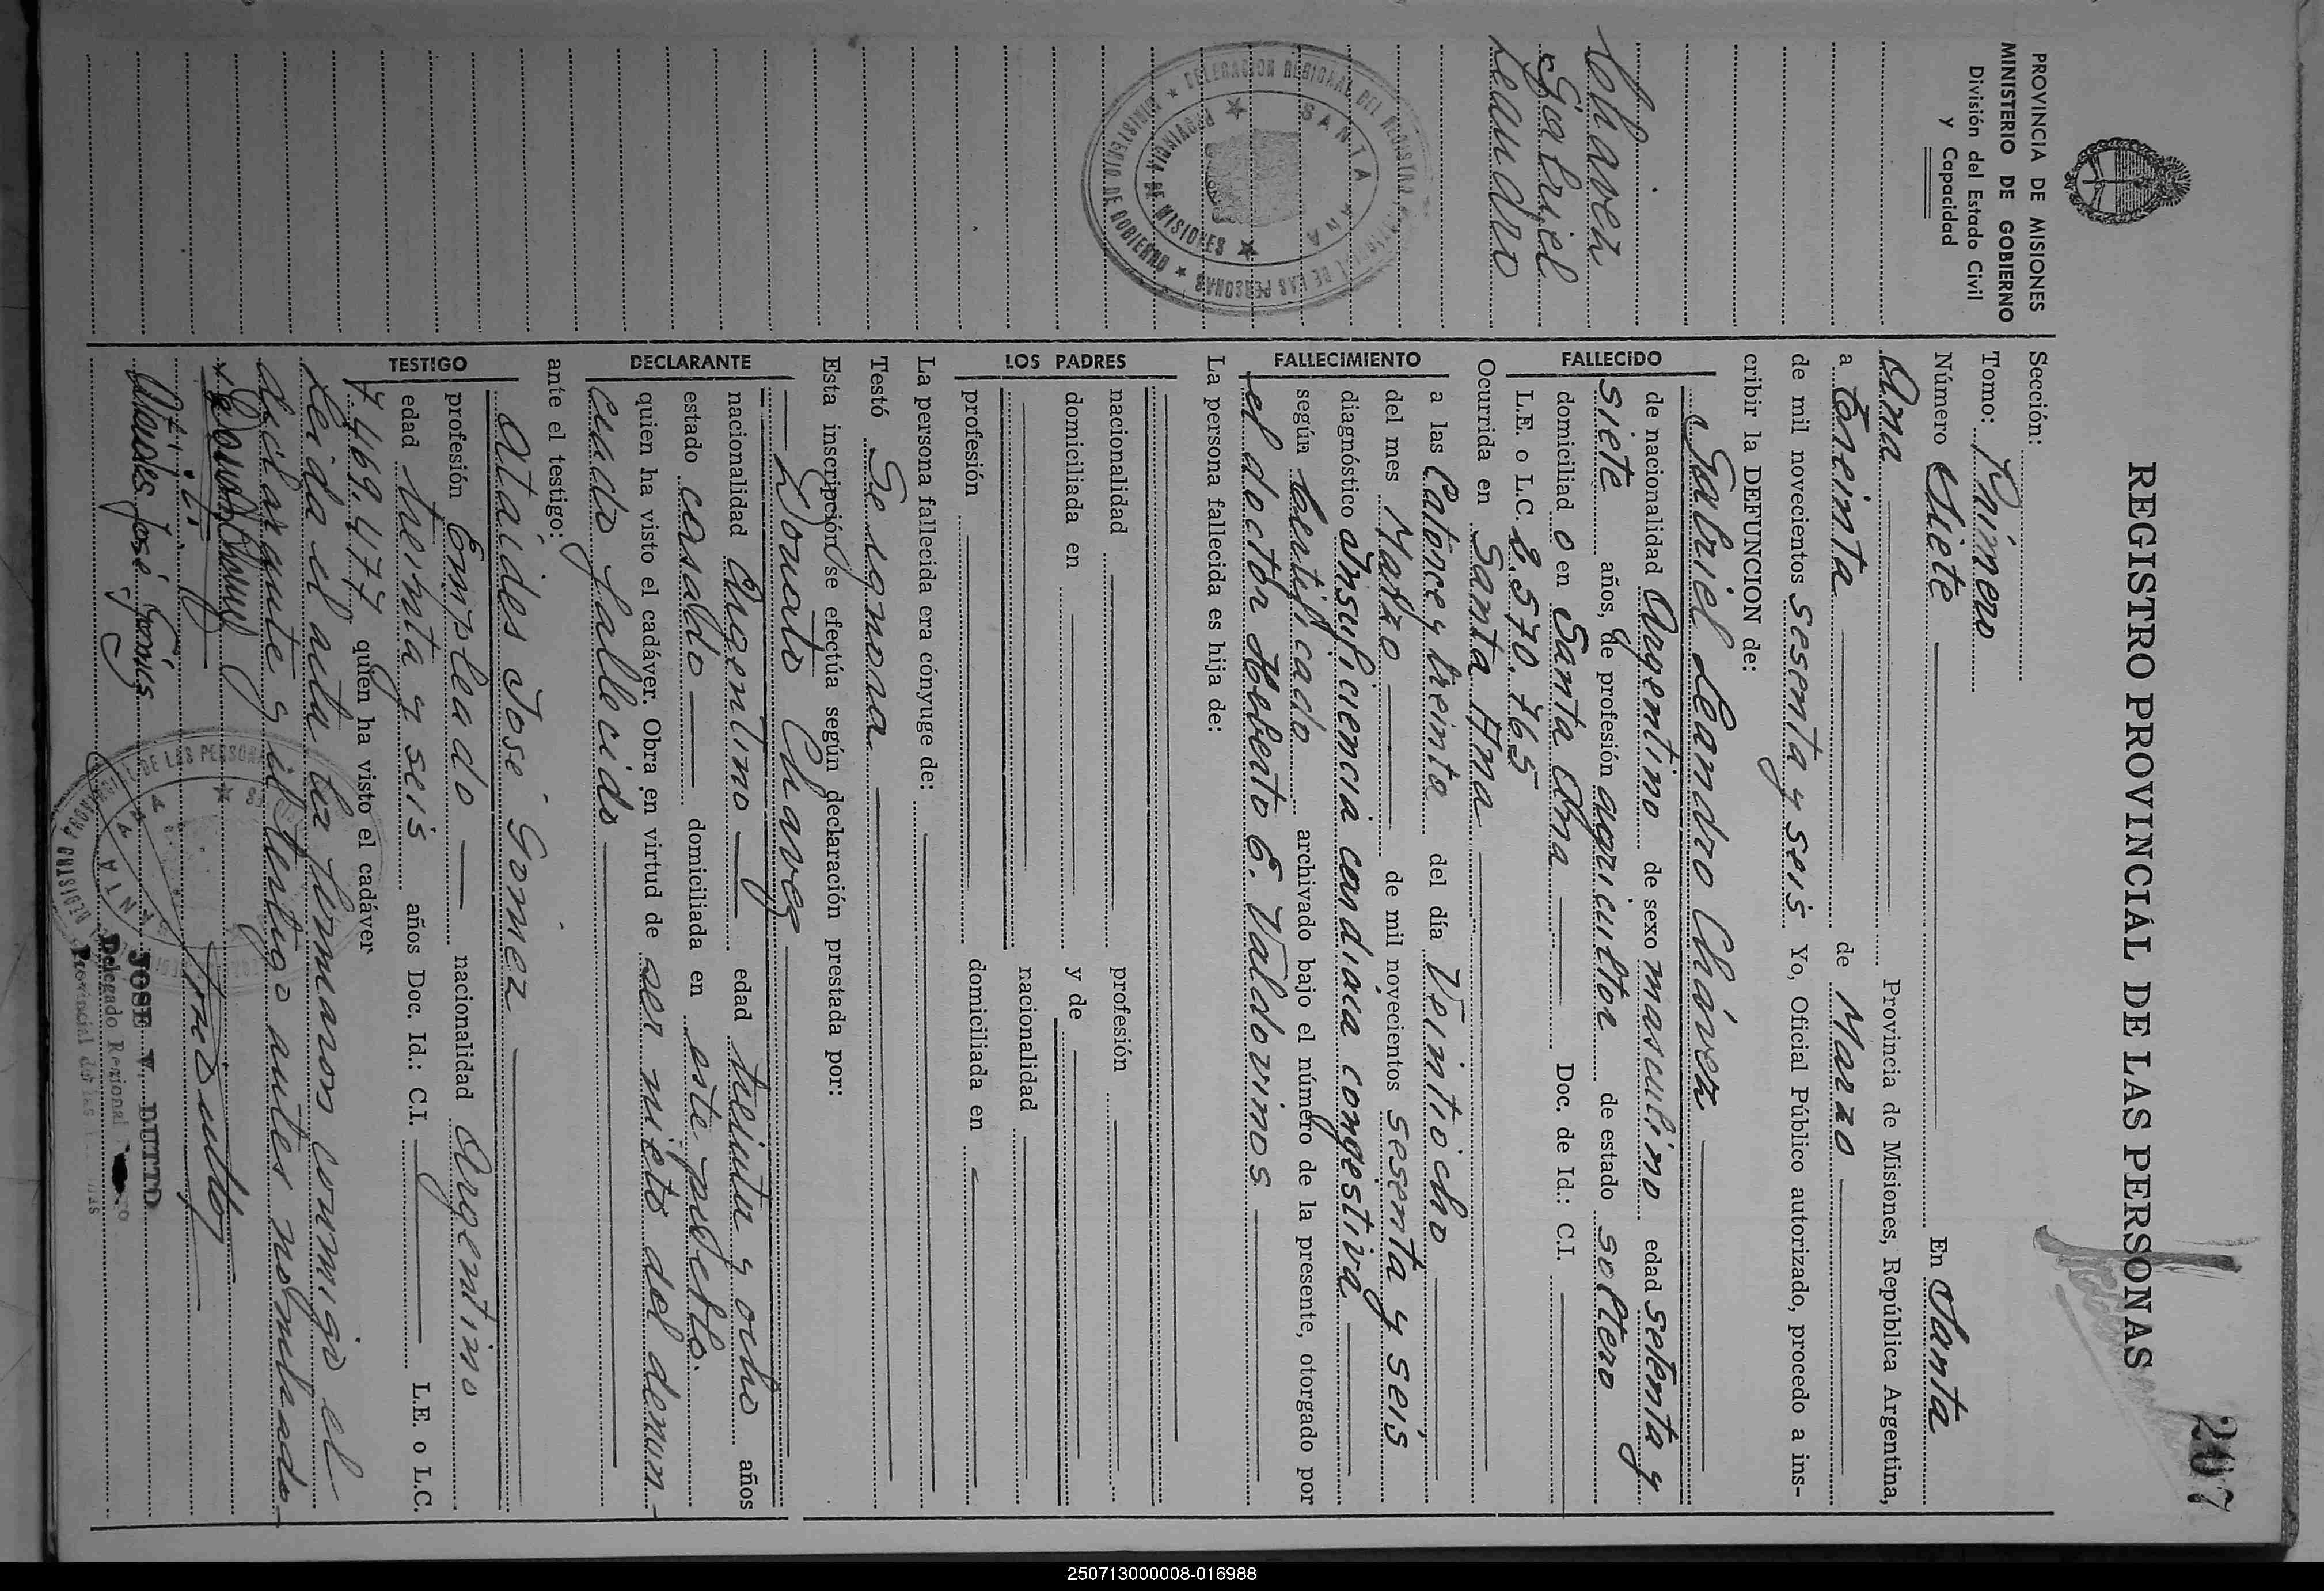 207
REGISTRO PROVINCIAL DE LAS PERSONAS
PROVINCIA DE MISIONES
MINISTERIO DE GOBIERNO
División del Estado Civil
y Capacidad
Chavez
Gabriel
Leandro
DELEGACION REGIONAL DEL REGISTRO PROVINCIAL DE LAS PERSONAS ★ MINISTERIO DE GOBIERNO ★
SANTA ANA ★ PROVINCIA DE MISIONES ★
Sección:
Tomo: Primero
Número Siete En Santa
Ana Provincia de Misiones, República Argentina,
a Treinta de Marzo
de mil novecientos sesenta y seis Yo, Oficial Público autorizado, procedo a ins-
cribir la DEFUNCION de:
FALLECIDO
Gabriel Leandro Chávez
de nacionalidad Argentino de sexo masculino edad setenta y
siete años, de profesión agricultor de estado soltero
domiciliad o en Santa Ana Doc. de Id.: C.I.
L.E. o L.C. 2.570.765
FALLECIMIENTO
Ocurrida en Santa Ana
a las Catorce y treinta del día Veintiocho
del mes Marzo de mil novecientos sesenta y seis
diagnóstico Insuficiencia cardiaca congestiva
según Certificado archivado bajo el número de la presente, otorgado por
el doctor Heberto E. Valdovinos
La persona fallecida es hija de:
LOS PADRES
nacionalidad profesión
domiciliada en y de
nacionalidad
profesión domiciliada en
La persona fallecida era cónyuge de:
Testó Se ignora
Esta inscripción se efectúa según declaración prestada por:
DECLARANTE
Donato Chavez
nacionalidad Argentino edad treinta y ocho años
estado casado domiciliada en este pueblo.
quien ha visto el cadáver. Obra en virtud de ser nieto del denun-
ciado fallecido
ante el testigo:
TESTIGO
Ataides José Gomez
profesión Empleado nacionalidad Argentino
edad treinta y seis años Doc. Id.: C.I. L.E. o L.C.
7.469.477 quien ha visto el cadáver
Leida el acta la firmaron conmigo el
declarante y el testigo antes nombrado
JOSE V. DUTTO
Delegado Regional
Provincial de las